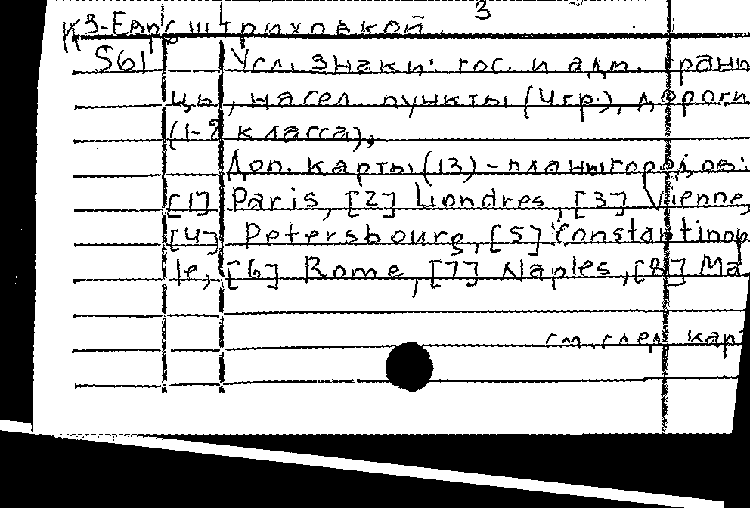 3
К 3-Евр с штриховкой
561 Усл. знаки: гос. и адм. грани
цы, насел. пункты (4 гр.), дороги
(1-2 класса),
Доп. карты (13) - планы городов:
[1] Paris, [2] Londres, [3] Vienne,
[4] Petersbourg, [5] Constantinop
le, [6] Rome, [7] Naples, [8] Ma
см. след. кар